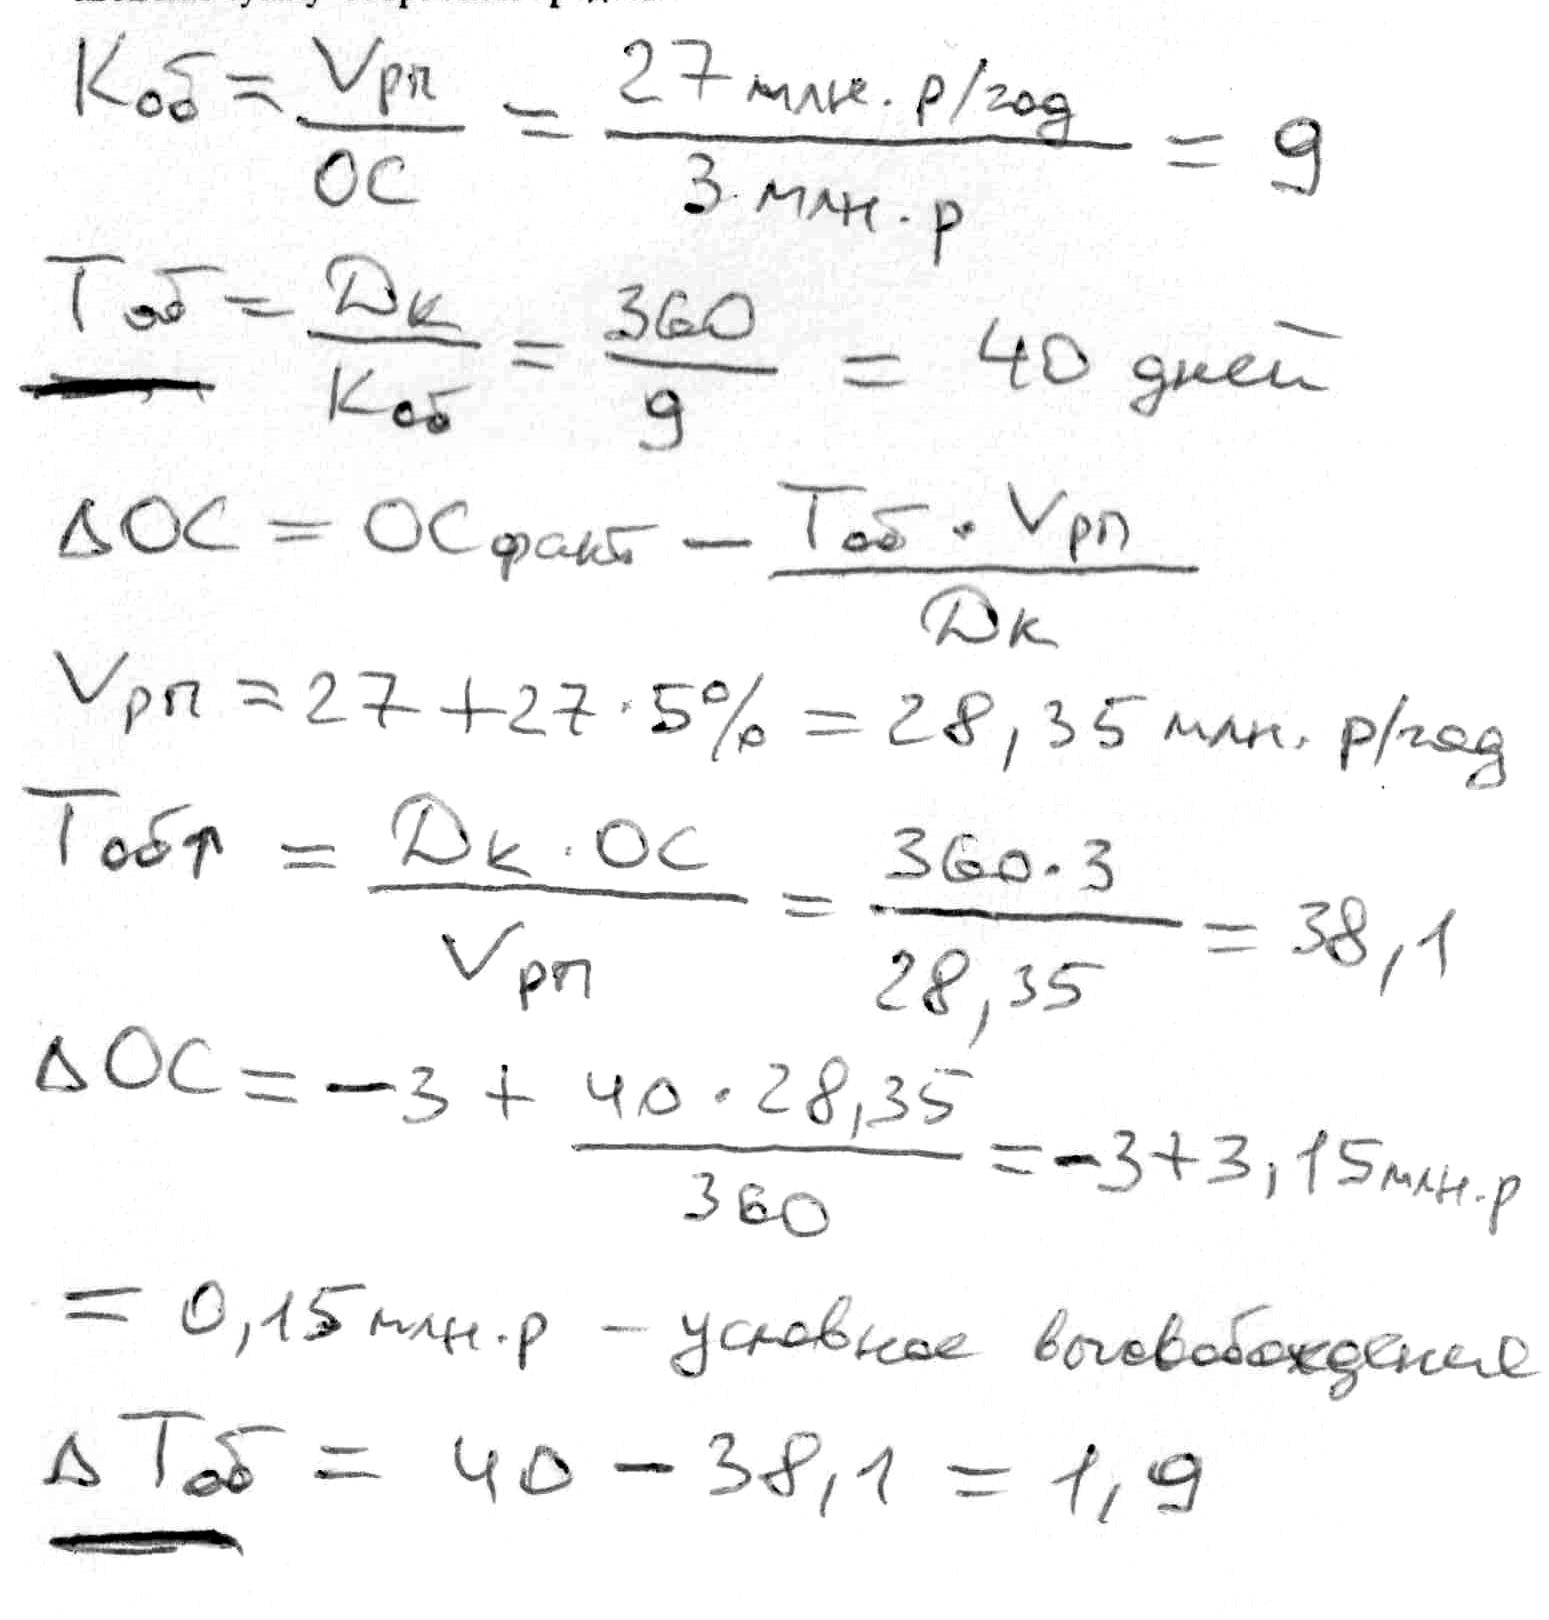 Kоб = Vрп / ОС = 27 млн. р/год / 3 млн. р = 9
Тоб = Дк / Коб = 360 / 9 = 40 дней
ΔОС = ОСфакт − Тоб · Vрп / Дк
Vрп = 27 + 27 · 5% = 28,35 млн. р/год
Тоб↑ = Дк · ОС / Vрп = 360 · 3 / 28,35 = 38,1
ΔОС = −3 + 40 · 28,35 / 360 = −3 + 3,15 млн. р
= 0,15 млн. р − условное высвобождение
ΔТоб = 40 − 38,1 = 1,9